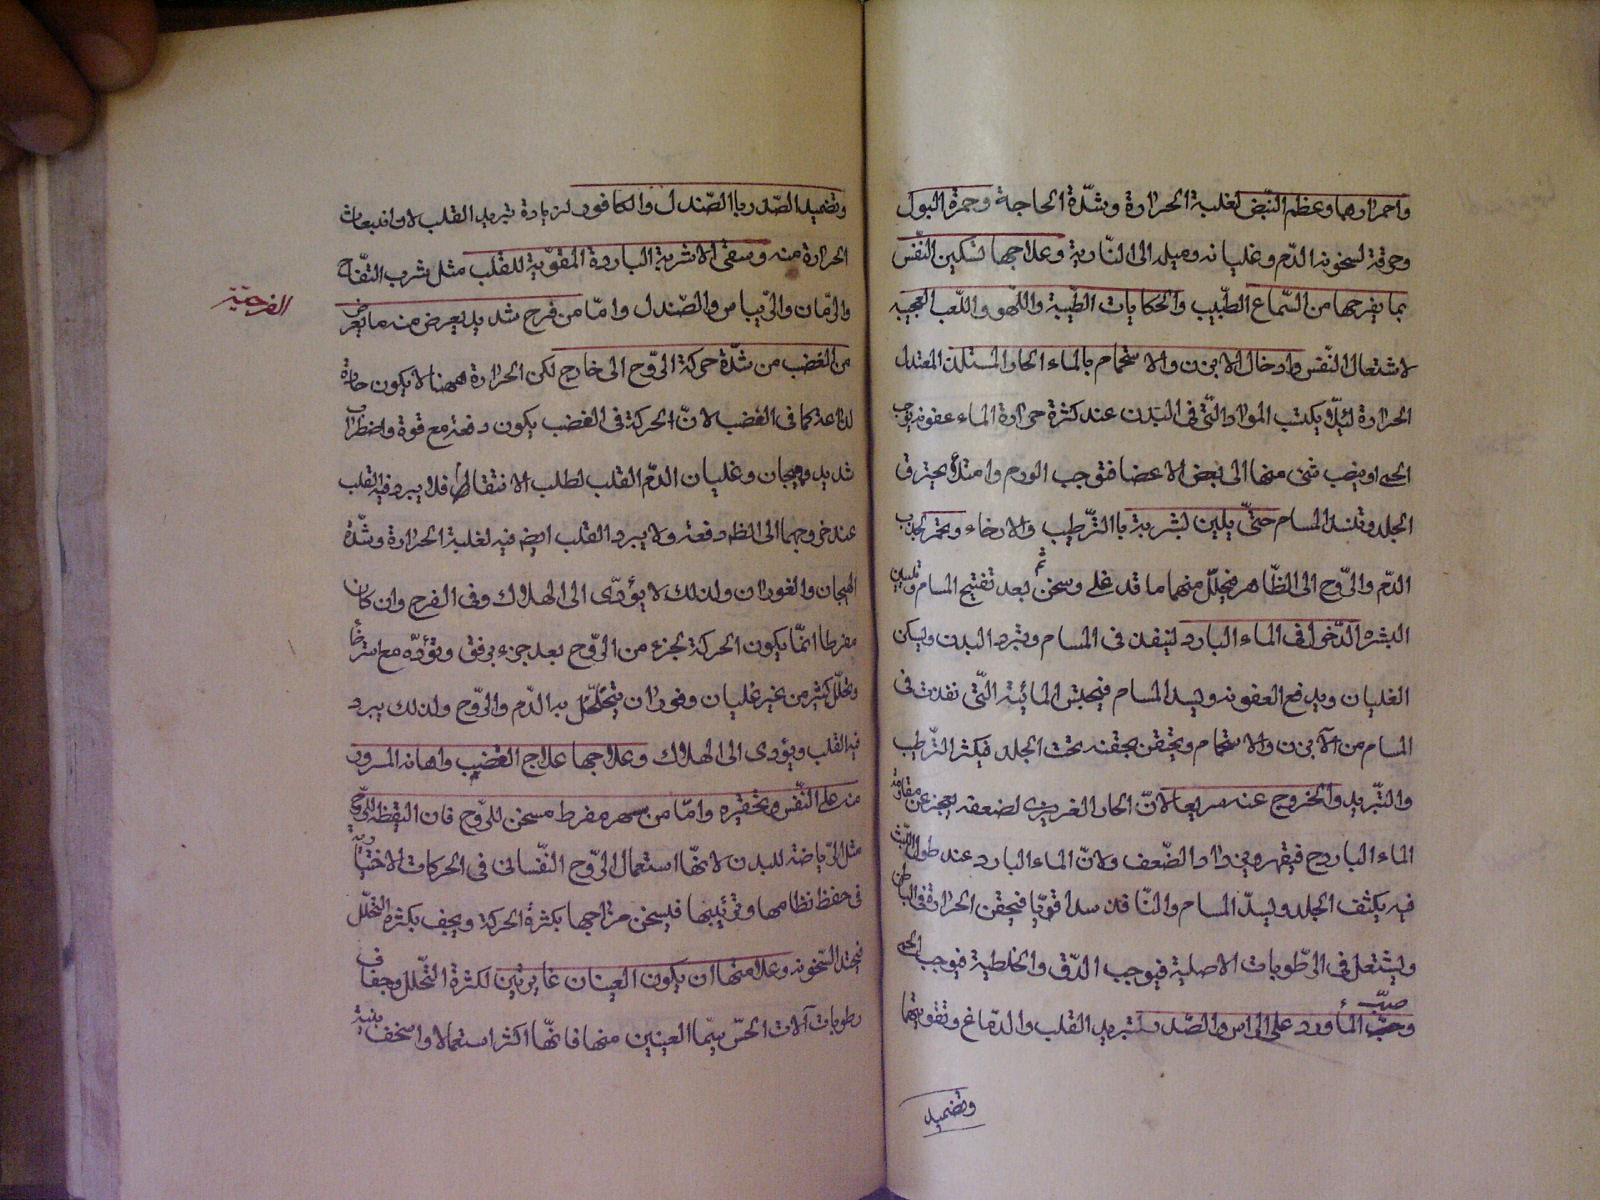 واحمرارهما وعظم النّبض لغلبة الحرارة وشدّة الحاجة وحمرة البول
وحرقة لسخونه الدّم وغليانه وميله الى النّارية وعلاجها تسكين النّفس
بما يفرحها من السّماع الطّيب والحكايات الطّيبة واللّهو واللّعب العجيبه
لاشتعال النّفس وادخال الابزن والاستحمام بالماء الحار المستلذ المعتدل
الحرارة لئلّا يكتسب المواد الّتى فى البدن عند كثرة حرارة الماء عفونه يوجب
الحمى او ينصب شئ منها الى بعض الاعضا فتوجب الورم وامتلأ يحترق
الجلد وتنسد المسام حتّى يلين بشربة باالتّرطيب والارخاء ويحمر لجذب
الدّم والرّوح الى الظّاهر فيحلّل منهما ما قد غلى وسخن ثم بعد تفتيح المسام وتليين
البشره الدّخول فى الماء البارد لينفذ فى المسام ويبرد البدن ويسكن
الغليان ويدفع العفونه ويسد المسام فيحتبس المائية الّتى نفذت فى
المسام من الآبزن والاستحمام ويحتقن بحقنه تحت الجلد فيكثر التّرطيب
والتّبريد والخروج عنه سريعا لانّ الحار الغريزى لضعفه يعجز عن مقاومة
الماء البارد فيقهره يزداد الضّعف ولانّ الماء البارد عند طول اللّبث
فيه يكثف الجلد ويسدّ المسام والمنّافذ سدا قويّا فيحقن الحرارة فى الباطن
ويشتعل فى الرّطوبات الاصلية فيوجب الدّق والخلطية فيوجب الحمى
وصبّ المأورد على الراس والصّدر لتبريد القلب والدّماغ وتقويتهما
وتضميد
وتضميد الصّدر باالصّندل والكافور لزيادة تبريد القلب لاوانبعاث
الحرارة منه وسقى الاشربة الباردة المقوّية للقلب مثل شرب التفّاح
والرّمان والرّيباس والصّندل وامّا من فرح شديد يعرض منه ما يعرض
الفرحيّة
من الغضب من شدّة حركة الرّوح الى خارج لكن الحرارة ههنا لا يكون حادة
لذاعة كما فى الغضب لانّ الحركة فى الغضب يكون دفعة مع قوة واضطراب
شديد وهيجان وغليان الدّم القلب لطلب الانتقام فلا يبرد فيه القلب
عند خروجهما الى الظه دفعة ولا يبرد القلب ايضه فيه لغلبة الحرارة وشّدة
الهيجان والفوران ولذلك لا يؤدّى الى الهلاك وفى الفرح وان كان
مفرطا انمّا يكون الحركة لجزء من الرّوح بعد جزء برفق وتؤدّه مع استرخا
وتحلّل كثير من غير غليان وفوران يتخلخل به الدّم والرّوح ولذلك يبرد
فيه القلب ويؤدى الى الهلاك وعلاجها علاج الغضب واهانه المسرور
منه على النّفس وتحقيره وامّا من سهر مفرط مسخن للرّوح فان اليقظه للرّوح
مثل الرّياضة للبدن لانهّا استعمال الرّوح النّفسانى فى الحركات الاختياريّة
فى حفظ نظامها وترتيبها فيسخن مزاجها بكثرة الحركة ويجف بكثرة التحلّل
فيحتد السّخونه وعلامتها ان يكون العينان غايرتين لكثرة التّحلل وجفاف
رطوبات آلات الحسّ سيّما العينين منها فانهّا اكثر استعمالا واسخف بنية